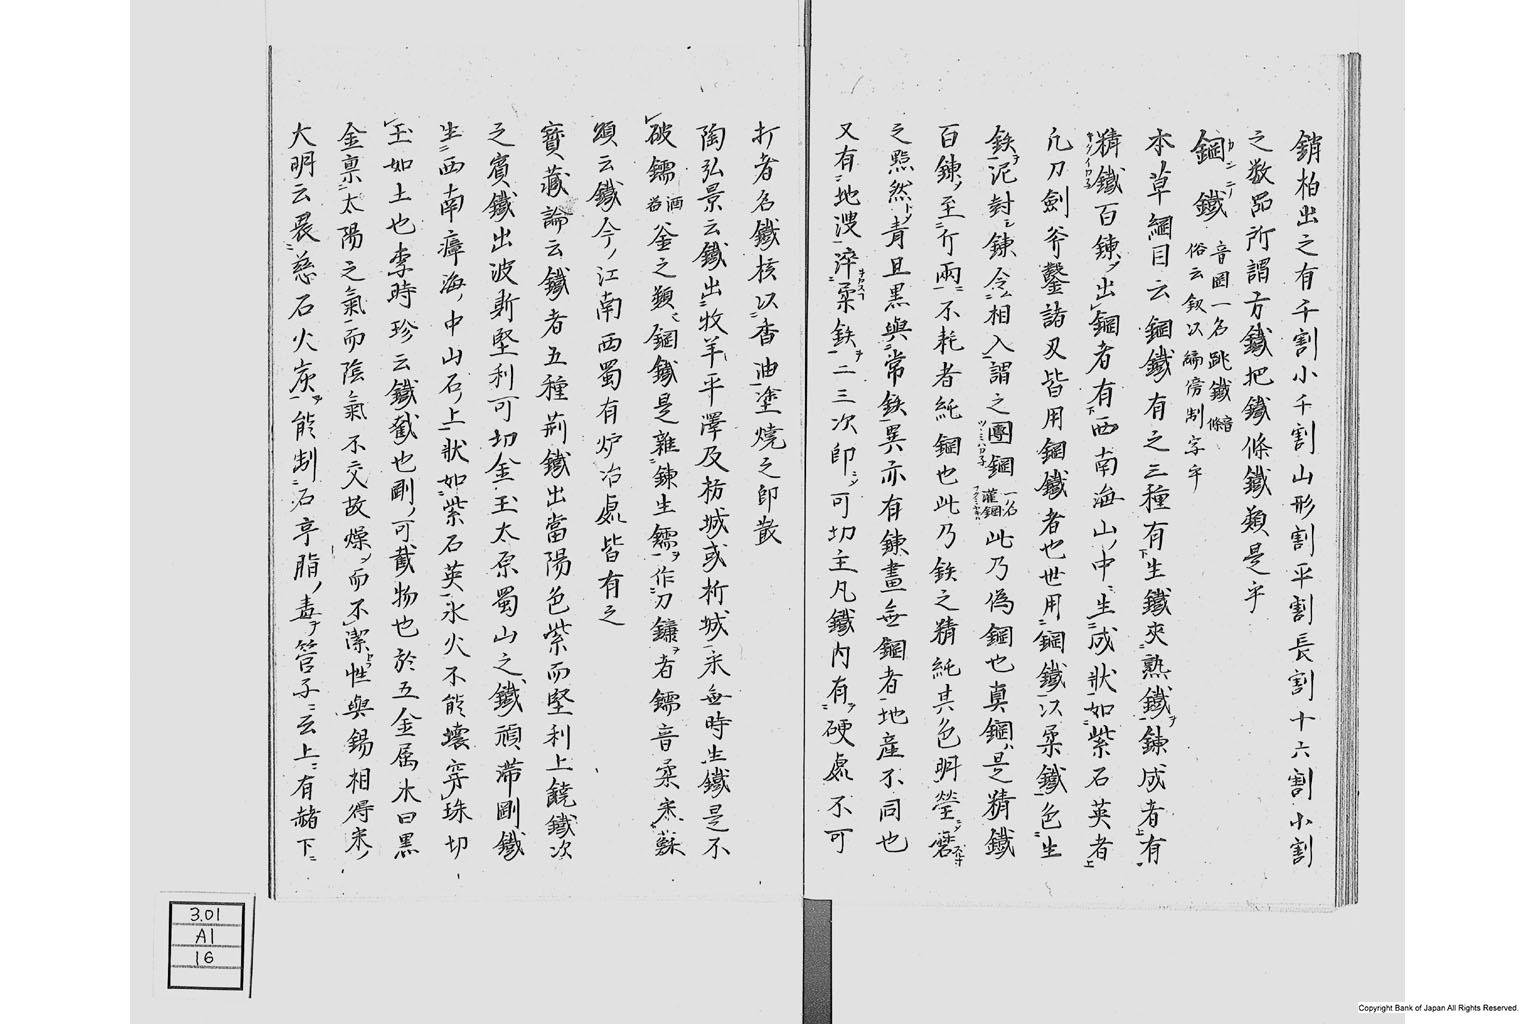 銷柏出之有千割小千割山形割平割長割十六割小割
之数品所謂方鐵把鐵條鐵類是乎
鋼鐵 音岡一名跳鐵音條 俗云釼以編傍制字乎
本草綱目云鋼鐵有之三種有生鐵夾熟鐵錬成者有
精鐵百錬出鋼者有西南海山中生成狀如紫石英者
凡刀劍斧鑿諸刄皆用鋼鐵者也世用鋼鐵以柔鐵色生
鉄泥封錬令相入謂之團鋼 一名灌鋼 此乃偽鋼也真鋼是精鐵
百錬至斤兩不耗者純鋼也此乃鉄之精純其色明瑩磨
之黯然青且黒與常鉄異亦有錬盡無鋼者地產不同也
又有地溲淬柔鉄二三次即可切玉凡鐵内有硬處不可
打者名鐵核以香油塗燒之即散
陶弘景云鐵出牧羊平澤及枋城或析城采無時生鐵是不
破鑐 釜之類鋼鐵是雜錬生鑐作刀鐮者鑐音柔宋蘇
頌云鐵今江南西蜀有炉冶處皆有之
寶藏論云鐵者五種荊鐵出當陽色紫而堅利上饒鐵次
之賓鐵出波斯堅利可切金玉太原蜀山之鐵頑滞剛鐵
生西南瘴海中山石上狀如紫石英水火不能壞穿珠切
玉如土也李時珍云鐵截也剛可截物也於五金属水曰黒
金禀太陽之氣而陰氣不交故燥而不潔性與錫相得宋
大明云畏慈石火炭能制石亭脂毒管子云上有赭下
3.01
A1
16
Copyright Bank of Japan All Rights Reserved.